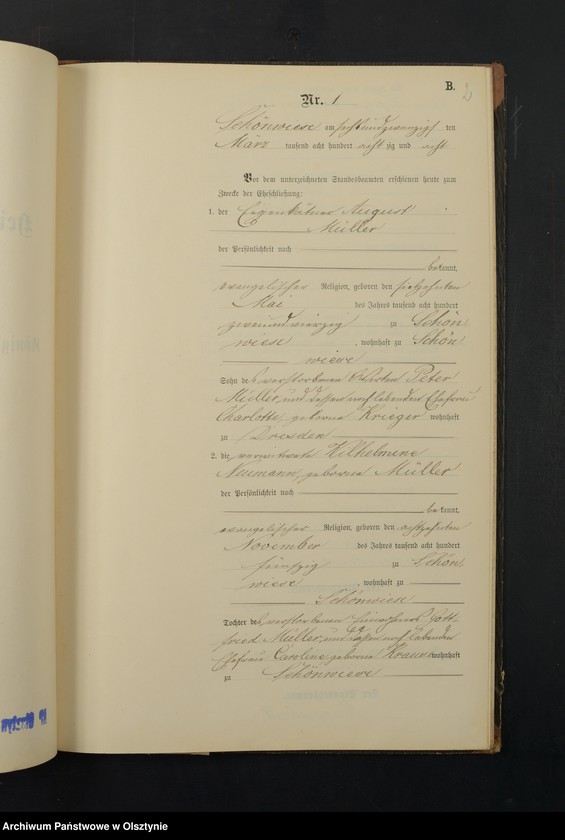 B.
2
Nr. 1
Schönwiese am sechsundzwanzigsten ten
März tausend acht hundert acht zig und acht
Vor dem unterzeichneten Standesbeamten erschienen heute zum
Zwecke der Eheschließung:
1. der Eigenkätner August
Müller
der Persönlichkeit nach
bekannt,
evangelischer Religion, geboren den siebzehnten
Mai des Jahres tausend acht hundert
zweiundvierzig zu Schön
wiese, wohnhaft zu Schön
wiese
Sohn des verstorbenen Peter
Müller und dessen noch lebenden Ehefrau
Charlotte, geborne Krieger wohnhaft
zu Dresden
2. die verwittwete Wilhelmine
Neumann, geborene Müller
der Persönlichkeit nach
bekannt,
evangelischer Religion, geboren den achtzehnten
November des Jahres tausend acht hundert
fünfzig zu Schön
wiese, wohnhaft zu
Schönwiese
Tochter des verstorbenen Einwohners Gott
fried Müller und dessen noch lebenden
Ehefrau Caroline geborne wohnhaft
zu Schönwiese
Archiwum Państwowe w Olsztynie